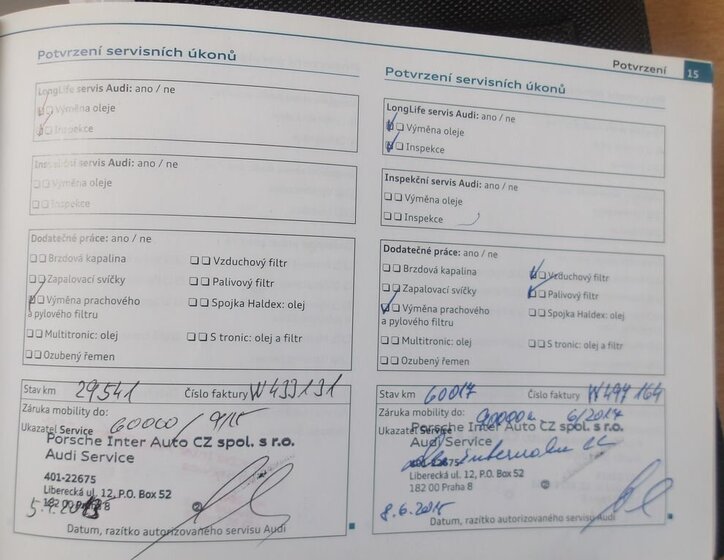 Potvrzení 15
Potvrzení servisních úkonů
LongLife servis Audi: ano / ne
Výměna oleje
Inspekce
Inspekční servis Audi: ano / ne
Výměna oleje
Inspekce
Dodatečné práce: ano / ne
Brzdová kapalina
Vzduchový filtr
Zapalovací svíčky
Palivový filtr
Výměna prachového
a pylového filtru
Spojka Haldex: olej
Multitronic: olej
S tronic: olej a filtr
Ozubený řemen
Stav km 29541 Číslo faktury W433131
Záruka mobility do:
Ukazatel Service 60000 / 9/15
Porsche Inter Auto CZ spol. s r.o.
Audi Service
401-22675
Liberecká ul. 12, P.O. Box 52
182 00 Praha 8
Datum, razítko autorizovaného servisu Audi
Potvrzení servisních úkonů
LongLife servis Audi: ano / ne
Výměna oleje
Inspekce
Inspekční servis Audi: ano / ne
Výměna oleje
Inspekce
Dodatečné práce: ano / ne
Brzdová kapalina
Vzduchový filtr
Zapalovací svíčky
Palivový filtr
Výměna prachového
a pylového filtru
Spojka Haldex: olej
Multitronic: olej
S tronic: olej a filtr
Ozubený řemen
Stav km 60017 Číslo faktury W497164
Záruka mobility do: 6/2017
Ukazatel Service
Porsche Inter Auto CZ spol. s r.o.
Audi Service
401-22675
Liberecká ul. 12, P.O. Box 52
182 00 Praha 8
8.6.2015
Datum, razítko autorizovaného servisu Audi